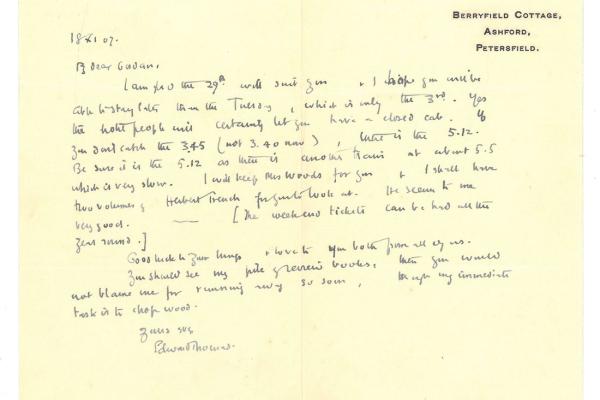 BERRYFIELD COTTAGE,
ASHFORD,
PETERSFIELD.
18 XI 07.
My dear Gordon,
I am glad the 29th will suit you & I hope you will be
able to stay later than the Tuesday, which is only the 3rd. Yes
the hotel people will certainly let you have a closed cab. If
you don't catch the 3.45 (not 3.40 now), there is the 5.12.
Be sure it is the 5.12 as there is another train at about 5.5
which is very slow. I will keep Mrs Woods for you & I shall have
two volumes of Herbert Trench for you to look at. He seems to me
very good. — [The weekend tickets can be had all the
year round.]
Good luck to your things & love to you both from all of us.
You should see my pile of review books, then you would
not blame me for running away so soon, though my immediate
task is to chop wood.
Yours ever
Edward Thomas.